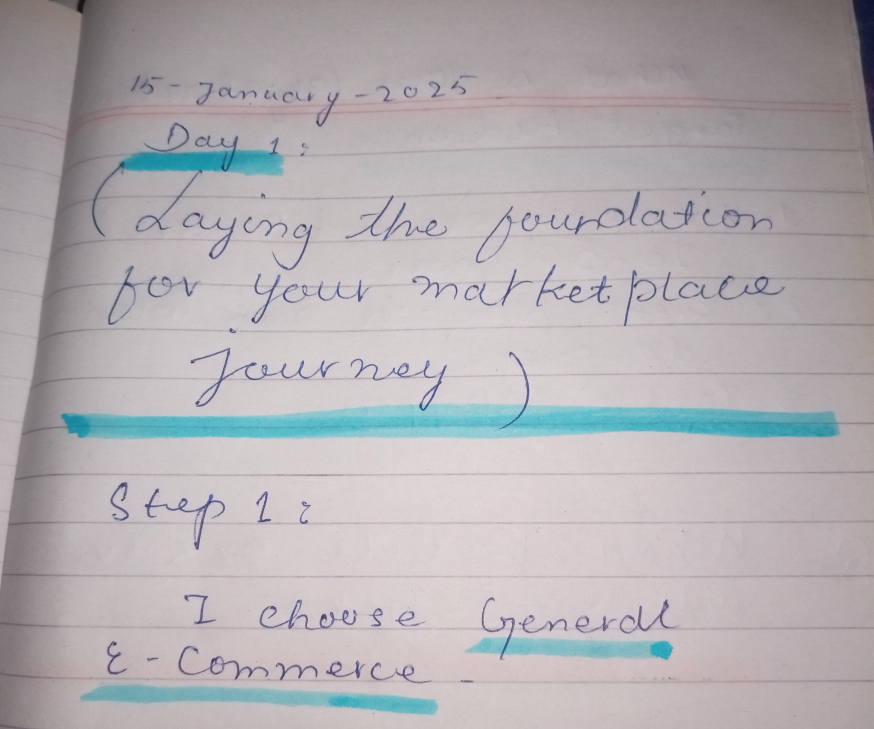 15-January-2025
Day 1:
(Laying the foundation
for your marketplace
journey)
Step 1:
I choose General
E-Commerce.